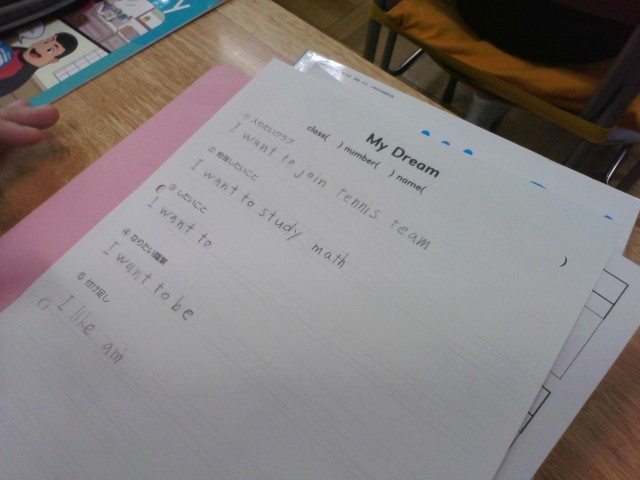 My Dream
class( ) number( ) name( )
① 入りたいクラブ
I want to join tennis team
② 勉強したいこと
I want to study math
③ したいこと
I want to
④ なりたい職業
I want to be
⑤ 付け足し
I like ami